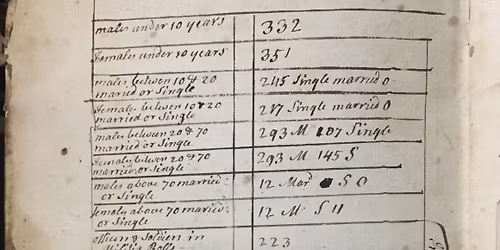 males under 10 years 332
females under 10 years 351
males between 10 & 20
married or Single 245 Single married 0
females between 10 & 20
married or Single 217 Single married 0
males between 20 & 70
married or Single 293 M 107 Single
females between 20 & 70
married or Single 293 M 145 S
males above 70 married
or Single 12 Mar S 0
females above 70 married
or Single 12 M S 11
officers & Soldiers in
Rolls 223